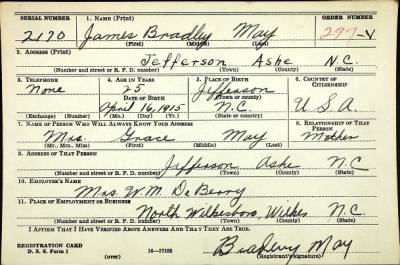 SERIAL NUMBER 1. NAME (Print) ORDER NUMBER
2170 James Bradley May 297-V
(First) (Middle) (Last)
2. ADDRESS (Print)
Jefferson Ashe N.C.
(Number and street or R. F. D. number) (Town) (County) (State)
3. TELEPHONE 4. AGE IN YEARS 5. PLACE OF BIRTH 6. COUNTRY OF CITIZENSHIP
None 25 Jefferson
DATE OF BIRTH (Town or county)
April 16, 1915 N.C. U.S.A.
(Exchange) (Number) (Mo.) (Day) (Yr.) (State or country)
7. NAME OF PERSON WHO WILL ALWAYS KNOW YOUR ADDRESS 8. RELATIONSHIP OF THAT PERSON
Mrs. Grace May Mother
(Mr., Mrs., Miss) (First) (Middle) (Last)
9. ADDRESS OF THAT PERSON
Jefferson Ashe N.C
(Number and street or R. F. D. number) (Town) (County) (State)
10. EMPLOYER'S NAME
Mrs. W. M. DeBerry
11. PLACE OF EMPLOYMENT OR BUSINESS
North Wilkesboro, Wilkes N.C.
(Number and street or R. F. D. number) (Town) (County) (State)
I AFFIRM THAT I HAVE VERIFIED ABOVE ANSWERS AND THAT THEY ARE TRUE.
REGISTRATION CARD
D. S. S. Form 1 16-17105
(over) May
(Registrant's signature)